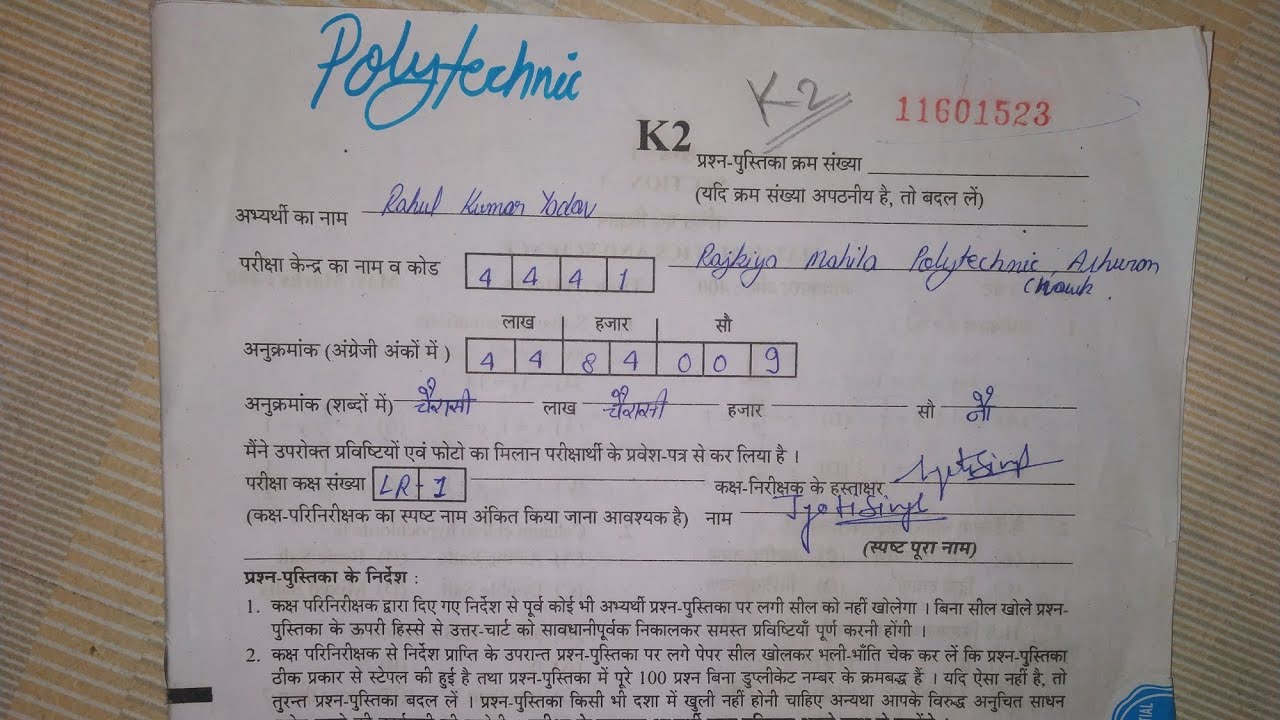 Polytechnic
K-2
11601523
K2
प्रश्न-पुस्तिका क्रम संख्या
(यदि क्रम संख्या अपठनीय है, तो बदल लें)
अभ्यर्थी का नाम Rahul Kumar Yadav
परीक्षा केन्द्र का नाम व कोड 4 4 4 1 Rajkiya Mahila Polytechnic,
Chowk.
लाख हजार सौ
अनुक्रमांक (अंग्रेजी अंकों में ) 4 4 8 4 0 0 9
अनुक्रमांक (शब्दों में) चौरासी लाख चौरासी हजार सौ नौ
मैंने उपरोक्त प्रविष्टियों एवं फोटो का मिलान परीक्षार्थी के प्रवेश-पत्र से कर लिया है ।
परीक्षा कक्ष संख्या LR-1 कक्ष-निरीक्षक के हस्ताक्षर Jyoti Singh
(कक्ष-परिनिरीक्षक का स्पष्ट नाम अंकित किया जाना आवश्यक है) नाम Jyoti Singh
(स्पष्ट पूरा नाम)
प्रश्न-पुस्तिका के निर्देश :
1. कक्ष परिनिरीक्षक द्वारा दिए गए निर्देश से पूर्व कोई भी अभ्यर्थी प्रश्न-पुस्तिका पर लगी सील को नहीं खोलेगा । बिना सील खोले प्रश्न-
पुस्तिका के ऊपरी हिस्से से उत्तर-चार्ट को सावधानीपूर्वक निकालकर समस्त प्रविष्टियाँ पूर्ण करनी होंगी ।
2. कक्ष परिनिरीक्षक से निर्देश प्राप्ति के उपरान्त प्रश्न-पुस्तिका पर लगे पेपर सील खोलकर भली-भाँति चेक कर लें कि प्रश्न-पुस्तिका
ठीक प्रकार से स्टेपल की हुई है तथा प्रश्न-पुस्तिका में पूरे 100 प्रश्न बिना डुप्लीकेट नम्बर के क्रमबद्ध हैं । यदि ऐसा नहीं है, तो
तुरन्त प्रश्न-पुस्तिका बदल लें । प्रश्न-पुस्तिका किसी भी दशा में खुली नहीं होनी चाहिए अन्यथा आपके विरुद्ध अनुचित साधन